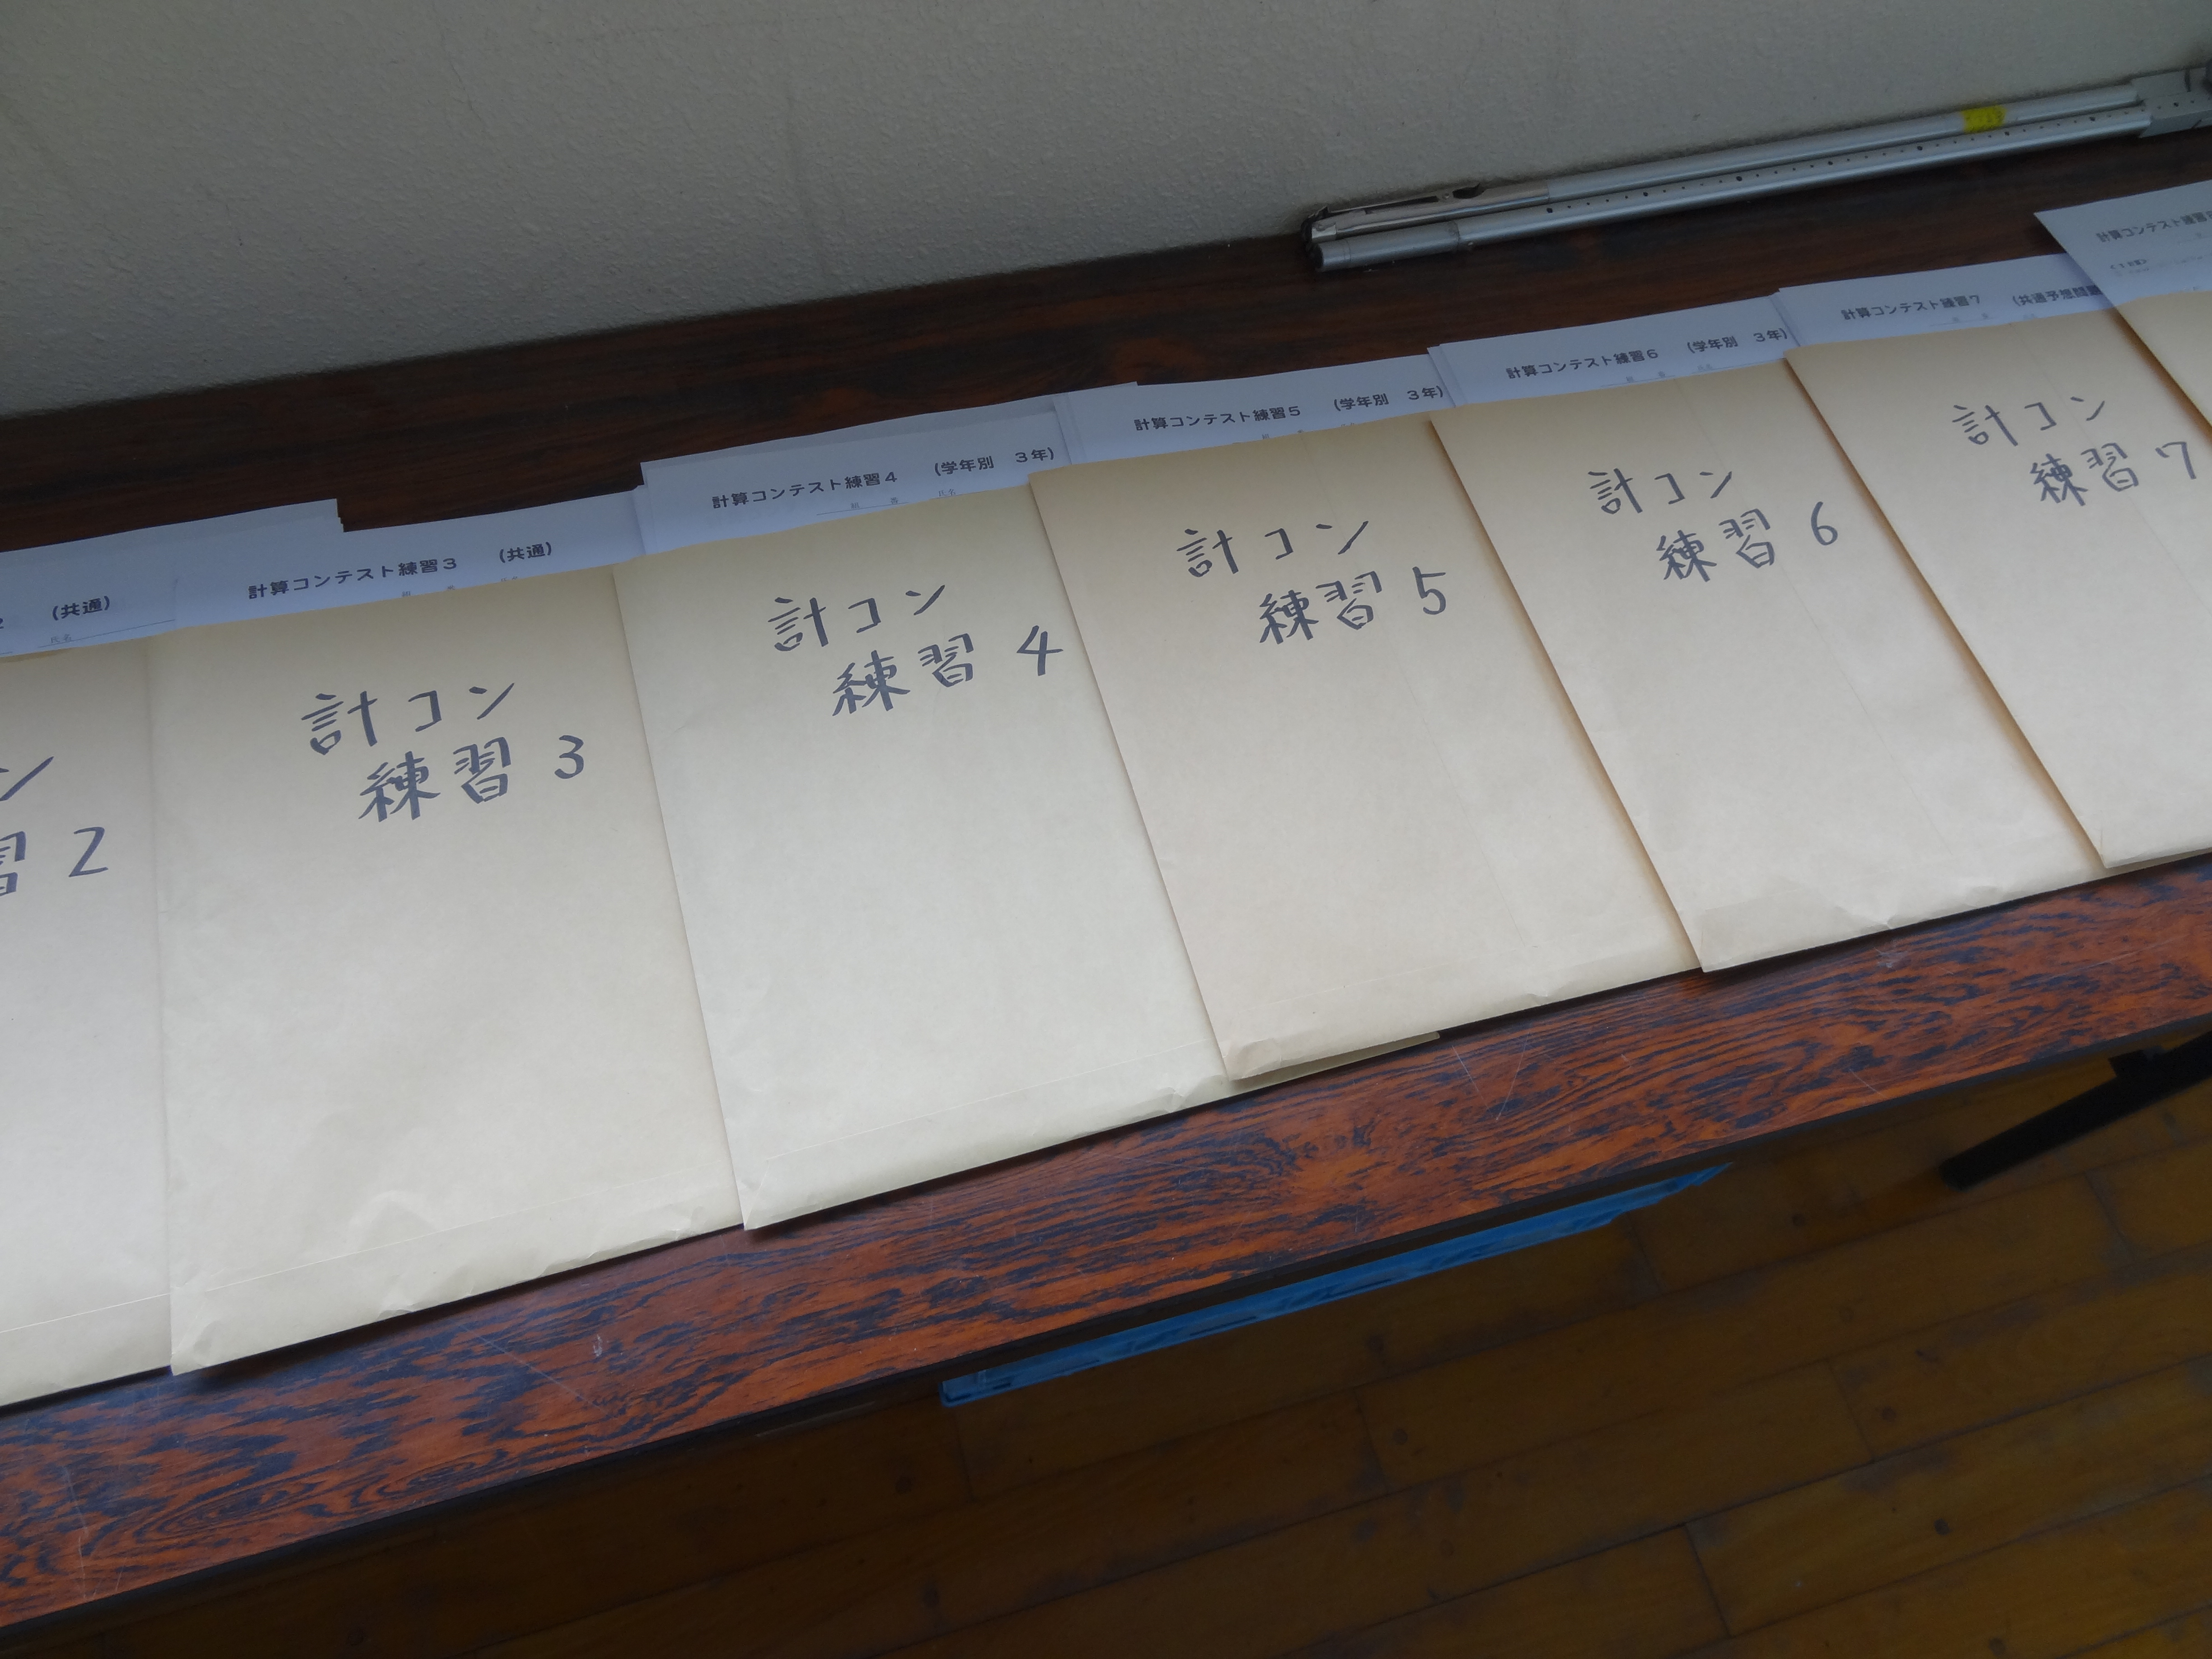 (共通)
ン
習 2
計算コンテスト練習3 (共通)
計コン
練習 3
計算コンテスト練習4 (学年別 3年)
組 番 氏名
計コン
練習 4
計算コンテスト練習5 (学年別 3年)
計コン
練習 5
計算コンテスト練習6 (学年別 3年)
計コン
練習 6
計算コンテスト練習7 (共通予想問題
計コン
練習 7
計算コンテスト練習